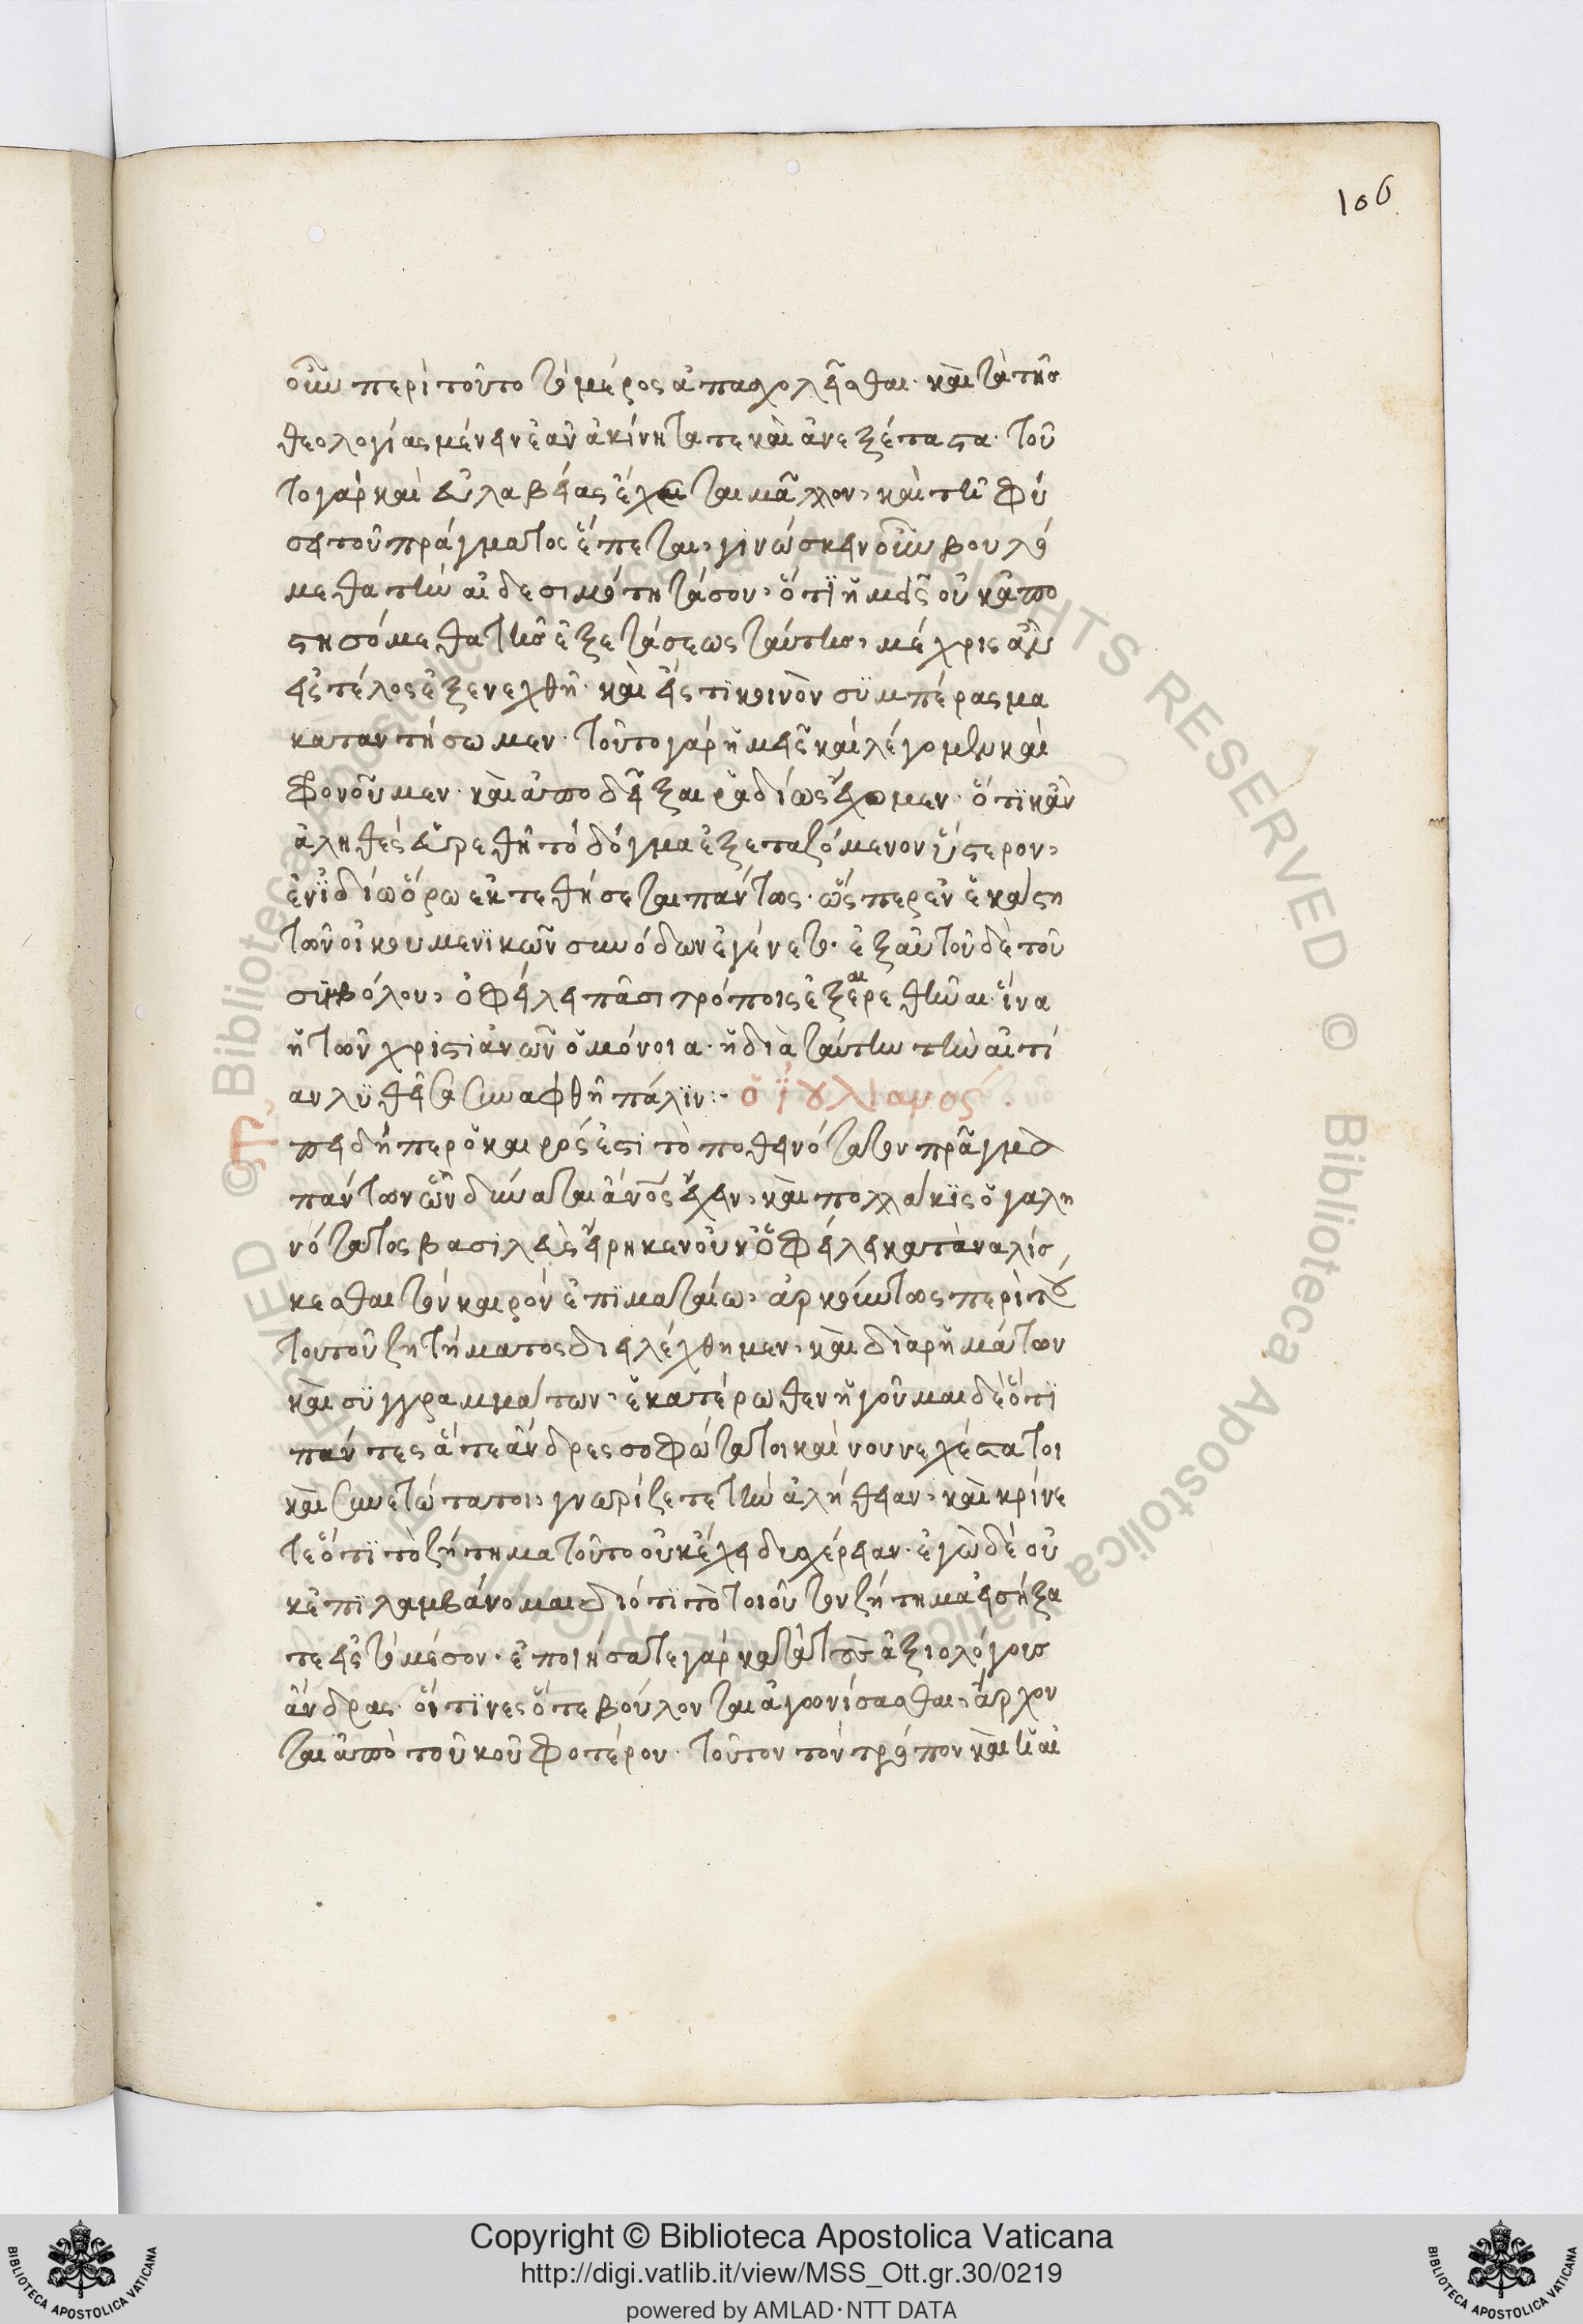 106
οὖν περὶ τοῦτο τὸ μέρος ἀπασχολεῖσθαι· καὶ τὰ τῆσ
θεολογίας μένειν ἐᾶν ἀκίνητά τε καὶ ἀνεξέταστα· τοῦ
το γὰρ καὶ εὐλαβείας ἔχεται μᾶλλον, καὶ τῆ φύ
σει τοῦ πράγματος ἕπεται, γινώσκειν οὖν βουλό
μεθα τὴν αἰδεσιμότητά σου, ὅτι ἡμεῖς οὐκ ἀπο
στησόμεθα τῆς ἐξετάσεως ταύτης, μέχρις ἂν
εἰς τέλος ἐξενεχθῆ· καὶ εἴς τι κοινὸν συμπέρασμα
καταντήσωμεν· τοῦτο γὰρ ἡμεῖς καὶ λέγομεν καὶ
φρονοῦμεν· καὶ ἀποδεῖξαι ῥαδίως ἔχομεν· ὅτι κἂν
ἀληθὲς εὑρεθῆ τὸ δόγμα ἐξεταζόμενον ὕστερον,
ἐν ἰδίω ὅρω ἐκτεθήσεται πάντως· ὥσπερ ἐν ἑκάστη
τῶν οἰκουμενικῶν συνόδων ἐγένετο· ἐξ αὐτοῦ δὲ τοῦ
συμβόλου, ὀφείλει πᾶσι τρόποις ἐξαιρεθῆναι· ἵνα
ἡ τῶν χριστιανῶν ὁμόνοια· ἡ διὰ ταύτην τὴν αἰτί
αν λυθεῖσα συναφθῆ πάλιν:- ὁ ἰουλιανός.
Ἐπειδήπερ ὁ καιρός ἐστι τὸ ποθεινότατον πρᾶγμα
πάντων ὧν δύναται ἄνος ἔχειν, καὶ πολλάκις ὁ γαλη
νότατος βασιλεὺς εἴρηκεν οὐκ ὀφείλει καταναλίσ
κεσθαι τὸν καιρὸν ἐπὶ ματαίω, ἀρκούντως περὶ τού
του τοῦ ζητήματος διειλέχθημεν, καὶ διὰ ρημάτων
καὶ συγγραμμάτων, ἑκατέρωθεν ἡγοῦμαι δὲ ὅτι
πάντες ἅτε ἄνδρες σοφώτατοι καὶ νουνεχέστατοι
καὶ συνετώτατοι, γνωρίζετε τὴν ἀλήθειαν, καὶ κρίνε
τε ὅτι τὸ ζήτημα τοῦτο οὐκ ἔχει δυσχέρειαν· ἐγὼ δὲ οὐ
κ ἐπιλαμβάνομαι διότι τὸ τοιοῦτον ζήτημα εἰσήξα
τε εἰς τὸ μέσον· ἐποιήσατε γὰρ κατὰ τοὺς ἀξιολόγους
ἄνδρας· οἵτινες ὅτε βούλονται ἀγωνίσασθαι, ἄρχον
ται ἀπὸ τοῦ κουφοτέρου· τοῦτον τὸν τρόπον καὶ ἡ αἰ
Copyright © Biblioteca Apostolica Vaticana
http://digi.vatlib.it/view/MSS_Ott.gr.30/0219
powered by AMLAD·NTT DATA